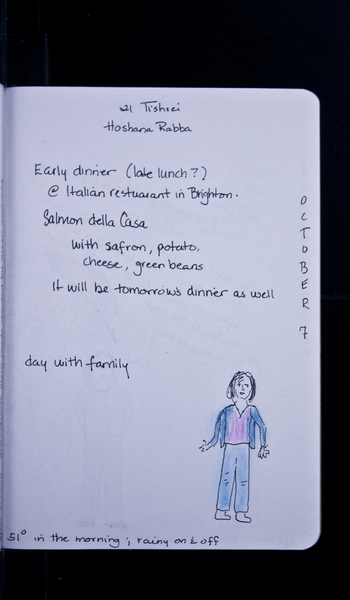 21 Tishrei
Hoshana Rabba
Early dinner (late lunch?)
@ Italian restuarant in Brighton.
Salmon della Casa
with safron, potato,
cheese, green beans
It will be tomorrow's dinner as well
day with family
OCTOBER 7
51° in the morning; rainy on & off